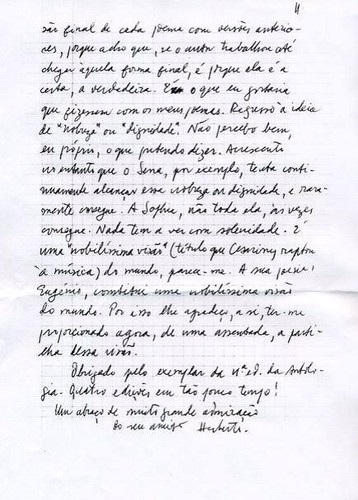 4
são final de cada poema com versões anterio-
res, porque acho que, se o autor trabalhou até
chegar àquela forma final, é porque ela é a
certa, a verdadeira. É o que eu gostaria
que fizessem com os meus poemas. Regresso à ideia
de "nobreza" ou "dignidade". Não percebo bem,
eu próprio, o que pretendo dizer. Acrescento
no entanto que o Sena, por exemplo, tenta conti-
nuamente alcançar essa nobreza ou dignidade, e rara-
mente consegue. A Sophia, não toda ela, às vezes
consegue. Nada tem a ver com solenidade. É
uma "nobilíssima visão" (título que Cesariny raptou
à música) do mundo, parece-me. A sua poesia,
Eugénio, constitui uma nobilíssima visão
do mundo. Por isso lhe agradeço, a si, ter-me
proporcionado agora, de uma assentada, a parti-
lha dessa visão.
Obrigado pelo exemplar da ed. da Antolo-
gia. Quatro edições em tão pouco tempo!
Um abraço de muito grande admiração
do seu amigo Herberto.